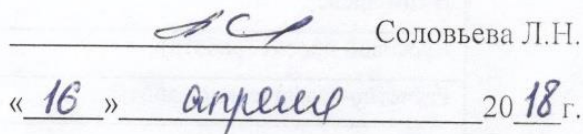 Соловьева Л.Н.
«16» апреля 2018 г.